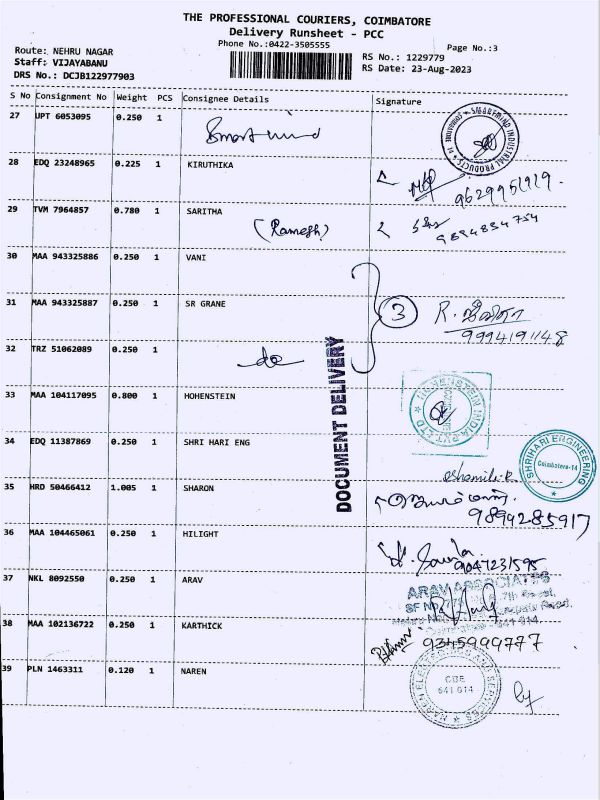 THE PROFESSIONAL COURIERS, COIMBATORE
Delivery Runsheet - PCC
Phone No.:0422-3505555
Page No.:3
Route: NEHRU NAGAR
Staff: VIJAYABANU
DRS No.: DCJB122977903
RS No.: 1229779
RS Date: 23-Aug-2023
S No Consignment No Weight PCS Consignee Details Signature
27 UPT 6053095 0.250 1 Smart mind
SMARTMIND INDUSTRIAL PRODUCTS
28 EDQ 23248965 0.225 1 KIRUTHIKA
9629951919.
29 TVM 7964857 0.780 1 SARITHA
(Ramesh)
9894834754
30 MAA 943325886 0.250 1 VANI
31 MAA 943325887 0.250 1 SR GRANE
3 R.
9994191148
32 TRZ 51062089 0.250 1 do
DOCUMENT DELIVERY
33 MAA 104117095 0.800 1 HOHENSTEIN
HOHENSTEIN INDIA PVT LTD
34 EDQ 11387869 0.250 1 SHRI HARI ENG
SHRIHARI ENGINEERING
Coimbatore-14
35 HRD 50466412 1.005 1 SHARON
9894285917
36 MAA 104465061 0.250 1 HILIGHT
9047231595
37 NKL 8092550 0.250 1 ARAV
ARAV ASSOCIATES
38 MAA 102136722 0.250 1 KARTHICK
9345999777
39 PLN 1463311 0.120 1 NAREN
CBE
641 014